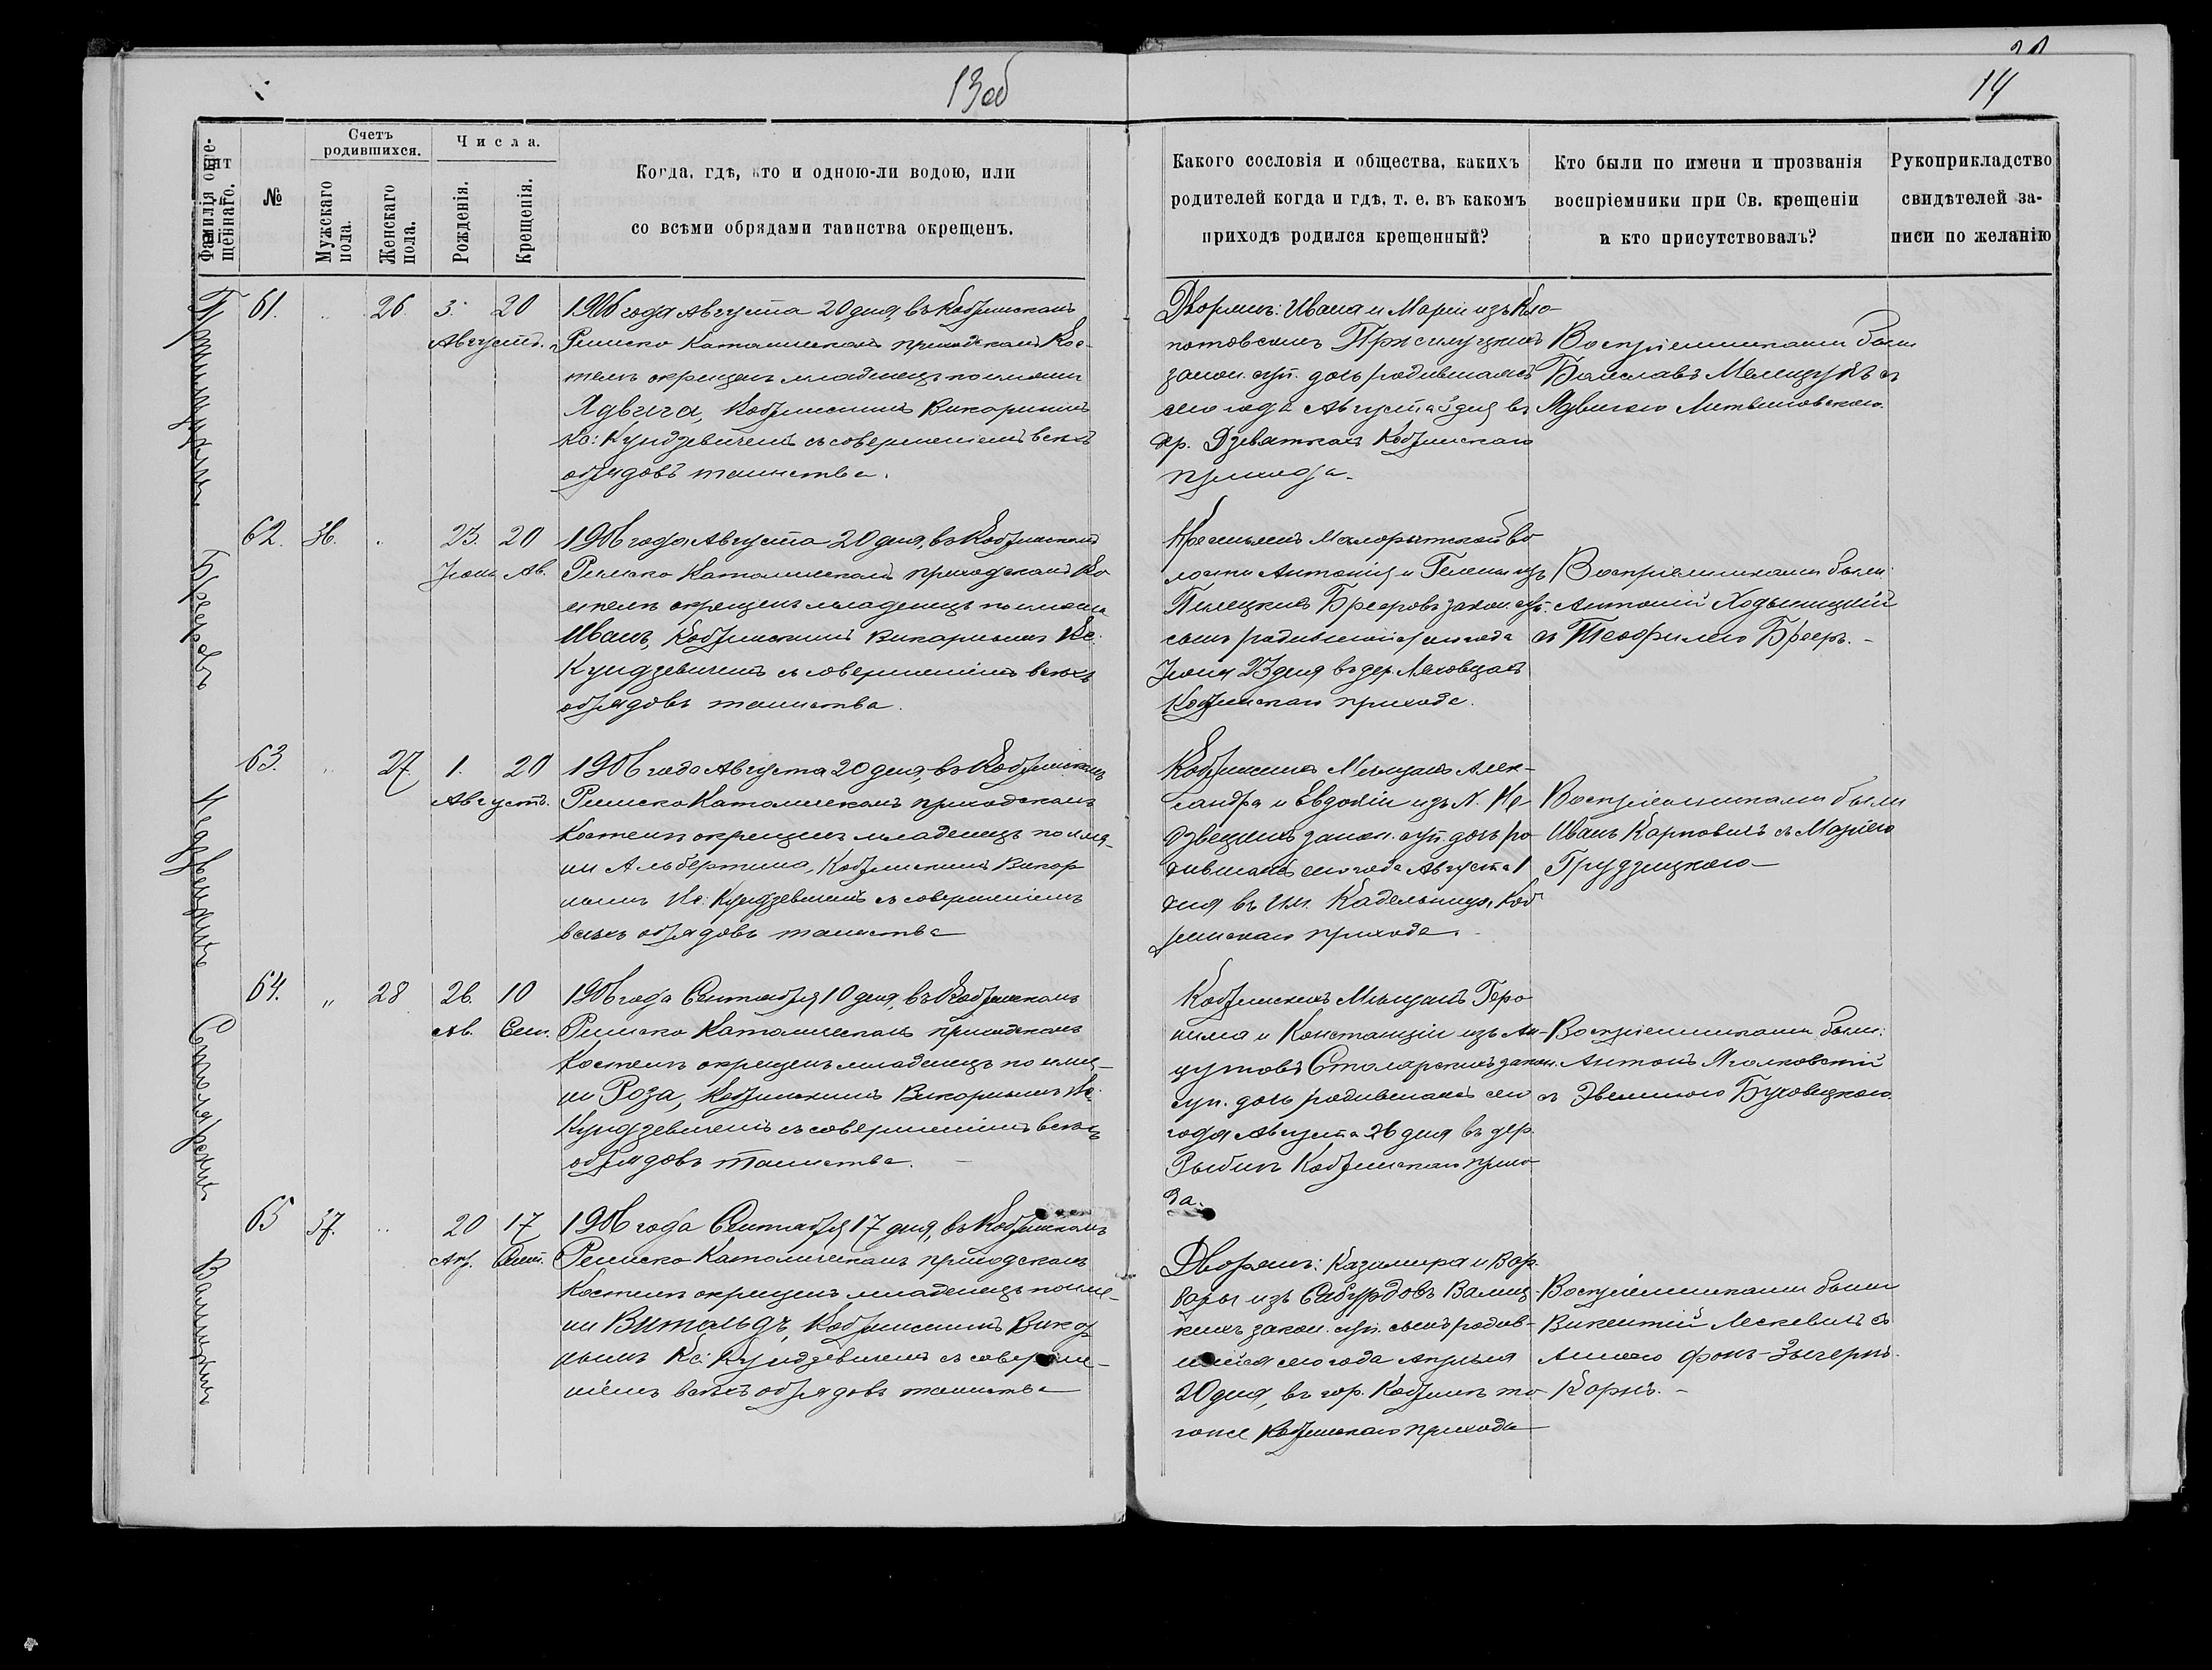 13об
14
Фамилія окре-
щеннаго.
№
Счетъ
родившихся.
Мужскаго
пола.
Женскаго
пола.
Числа.
Рожденія.
Крещенія.
Когда, гдѣ, кто и одною-ли водою, или
со всѣми обрядами таинства окрещенъ.
Какого сословія и общества, какихъ
родителей когда и гдѣ, т. е. въ какомъ
приходѣ родился крещенный?
Кто были по имени и прозванія
воспріемники при Св. крещеніи
и кто присутствовалъ?
Рукоприкладство
свидѣтелей за-
писи по желанію
61. 26. 3. 20
Августа.
1906 года Августа 20 дня, въ Кобринскомъ
Римско Католическомъ приходскомъ Кос-
телѣ окрещенъ младенецъ по имени
Ядвига, Кобринскимъ Викарнымъ
Кс: Кундзевичемъ съ совершеніемъ всѣхъ
обрядовъ таинства.
Дворянъ: Ивана и Маріи изъ Кло-
потовскихъ Пржилуцкихъ
закон. суп. дочь родившаяся
сего года Августа 3 дня въ
дер. Дзевяткахъ Кобринскаго
прихода.
Воспріемниками были
Болеславъ Мелещукъ съ
Ядвигою Литвиновскою.
Бреровъ
62. 36. 23. 20
Іюня Ав.
1906 года Августа 20 дня, въ Кобринскомъ
Римско Католическомъ приходскомъ Ко
стелѣ окрещенъ младенецъ по имени
Иванъ, Кобринскимъ Викарнымъ Кс.
Кундзевичемъ съ совершеніемъ всѣхъ
обрядовъ таинства.
Крестьянъ Малорытской во
лости Антонія и Гелены изъ
Пилецкихъ Брееровъ закон. суп.
сынъ родившійся сего года
Іюня 23 дня въ дер. Ляховцахъ
Кобринскаго прихода.
Воспріемниками были:
Антоній Ходыницкій
съ Теофилею Брееръ. -
Недзвецкихъ
63. 27. 1. 20
Августа.
1906 года Августа 20 дня, въ Кобринскомъ
Римско Католическомъ приходскомъ
Костелѣ окрещенъ младенецъ по име-
ни Альбертина, Кобринскимъ Викар
нымъ Кс: Кундзевичемъ съ совершеніемъ
всѣхъ обрядовъ таинства
Кобринскихъ Мѣщанъ Алек-
сандра и Евдокіи изъ N. Не
дзвецкихъ закон. суп. дочь ро
дившаяся сего года Августа 1
дня въ им. Кадельница, Коб
ринскаго прихода.
Воспріемниками были
Иванъ Карповичъ съ Маріею
Грудзицкою
Столярскихъ
64. „ 28 26. 10
Ав. Сен.
1906 года Сентября 10 дня, въ Кобринскомъ
Римско Католическомъ приходскомъ
Костелѣ окрещенъ младенецъ по име-
ни Роза, Кобринскимъ Викарнымъ Кс.
Кундзевичемъ съ совершеніемъ всѣхъ
обрядовъ таинства. -
Кобринскихъ Мѣщанъ Геро
нима и Констанціи изъ Ан-
цутовъ Столярскихъ закон.
суп. дочь родившаяся сего
года Августа 26 дня въ дер.
Рыбинѣ Кобринскаго прихо
да.
Воспріемниками были:
Антонъ Яголковскій
съ Эвелиною Буховецкою
Валицкихъ
65 37. 20 17
Апр. Сент.
1906 года Сентября 17 дня, въ Кобринскомъ
Римско Католическомъ приходскомъ
Костелѣ окрещенъ младенецъ по име-
ни Витальдъ, Кобринскимъ Викар
нымъ Кс: Кундзевичемъ съ соверше-
ніемъ всѣхъ обрядовъ таинства
Дворянъ: Казимира и Вар
вары изъ Сабурдовъ Валиц-
кихъ закон. суп. сынъ родив-
шійся сего года Апрѣля
20 дня, въ гор. Кобринѣ то
гоже Кобринскаго прихода
Воспріемниками были
Викентій Лескевичъ съ
Анною фонъ-Зыгернъ
Корнъ. -